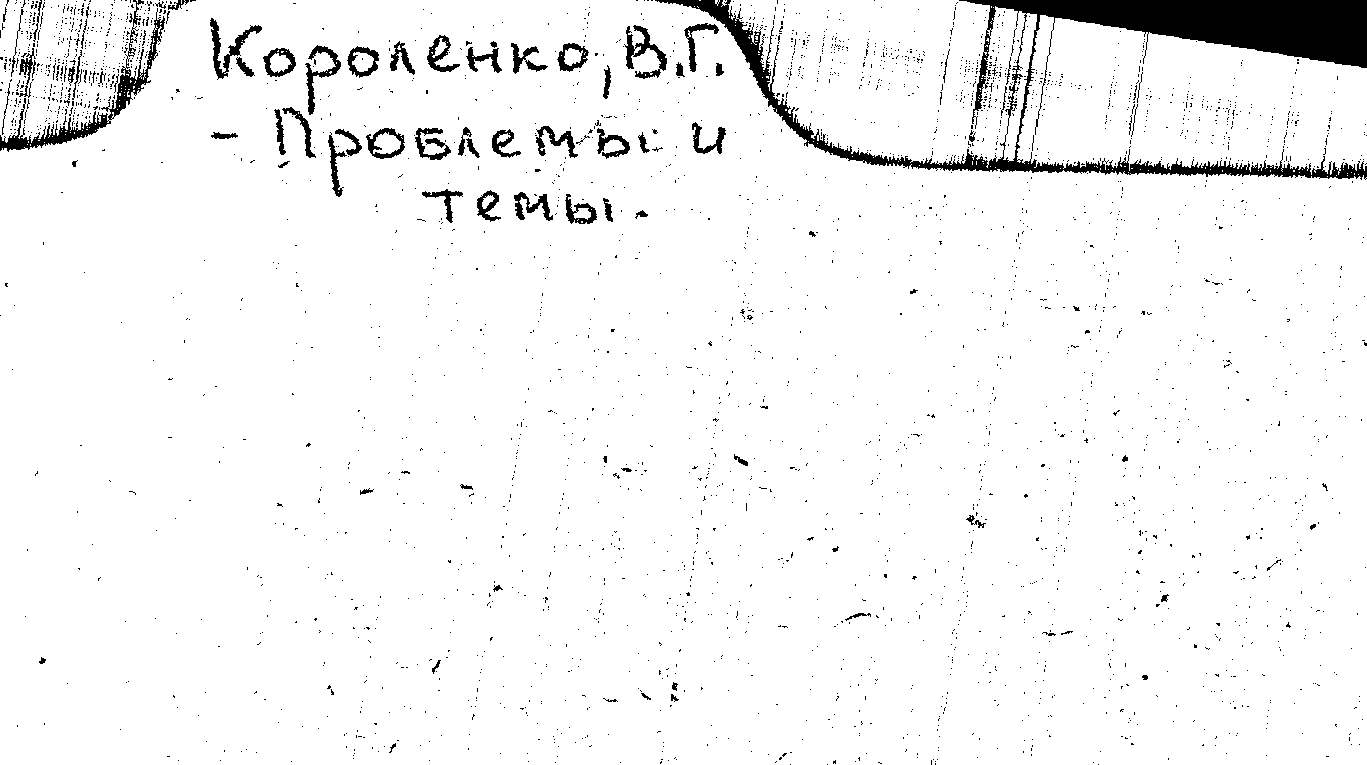 Короленко, В.Г.
- Проблемы и
темы.